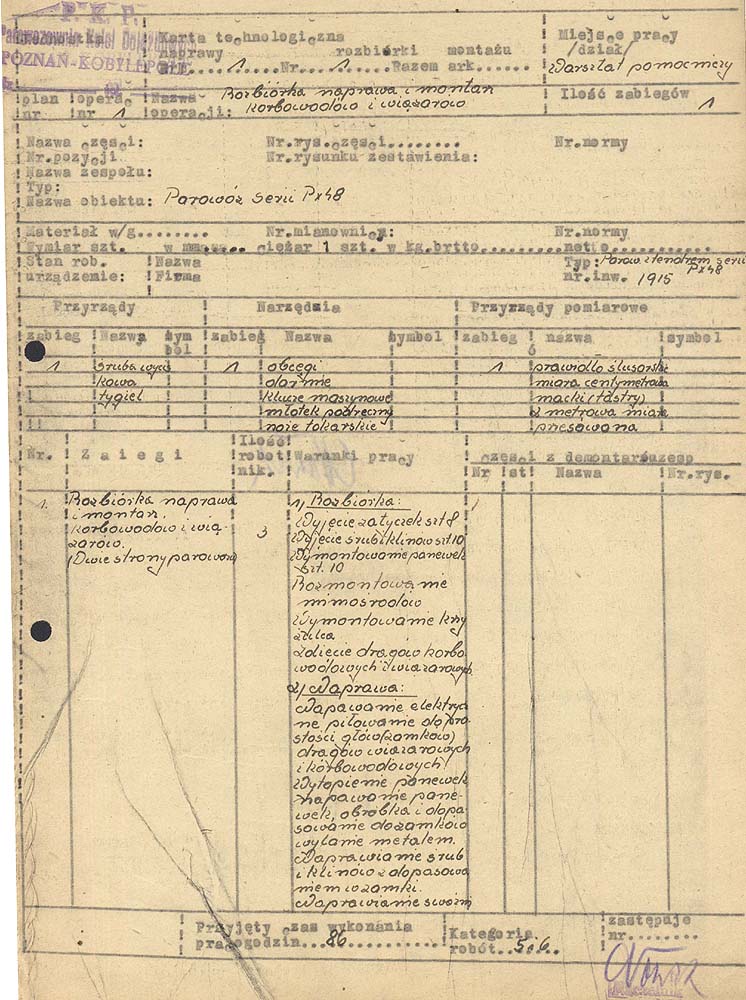 P. K. P.
Parowozownia Kolei Dojazdowej
POZNAŃ-KOBYLEPOLE
Karta technologiczna
naprawy rozbiórki montażu
Nr.....1....Nr....1....Razem ark......
Miejsce pracy
/dział/
Warsztat pomocniczy
plan nr
operac nr 1
Nazwa operacji: Rozbiórka naprawa i montaż
korbowodów i wiązarów
Ilość zabiegów
1
Nazwa części: Nr.rys.części........ Nr.normy
Nr.pozycji Nr.rysunku zestawienia:
Nazwa zespołu:
Typ:
Nazwa obiektu: Parowóz serii Px48
Materiał w/g........ Nr.mianownicy: Nr.normy
Wymiar szt. w ciężar 1 szt. w kg.brtto..........netto...........
Stan rob. Nazwa Typ: Parow. z tendrem serii
Px48
urządzenie: Firma nr.inw. 1915
Przyrządy Narzędzia Przyrządy pomiarowe
zabieg Nazwa symbol zabieg Nazwa symbol zabieg nazwa symbol
1 śruba wycis 1 obcęgi 1 prawidło ślusarskie
kowa miara centymetrowa
tygiel klucze maszynowe macki
młotek podręczny 2 metrowa miara
noże tokarskie
Nr. Zaiegi Ilość robotnik. Warunki pracy części z demontarżuzesp
Nr st Nazwa Nr.rys.
1. Rozbiórka naprawa
i montaż.
korbowodów i wią-
zarów.
(Dwie strony parowozu)
3
1) Rozbiórka:
Wyjęcie zatyczek szt 8
Wyjęcie śrub i klinów szt. 10
Wymontowanie panewek
szt. 10
Rozmontowanie
mimośrodów
Wymontowanie krzy
żulca
Zdjęcie drągów korbo
wodowych i wiązarowych
2) Naprawa:
Napawanie elektrycz
ne piłowanie do pro
stości głów (zamków)
drągów wiązarowych
i korbowodowych
Wytopienie panewek
napawanie pane-
wek, obróbka i dopa-
sowanie do zamków
wylanie metalem.
Naprawianie śrub
i klinów z dopasowa
niem w zamki.
Naprawianie sworzni
Przyjęty czas wykonania
pracogodzin...86.......
Kategoria
robót..5 i 6..
zastępuje
nr.........